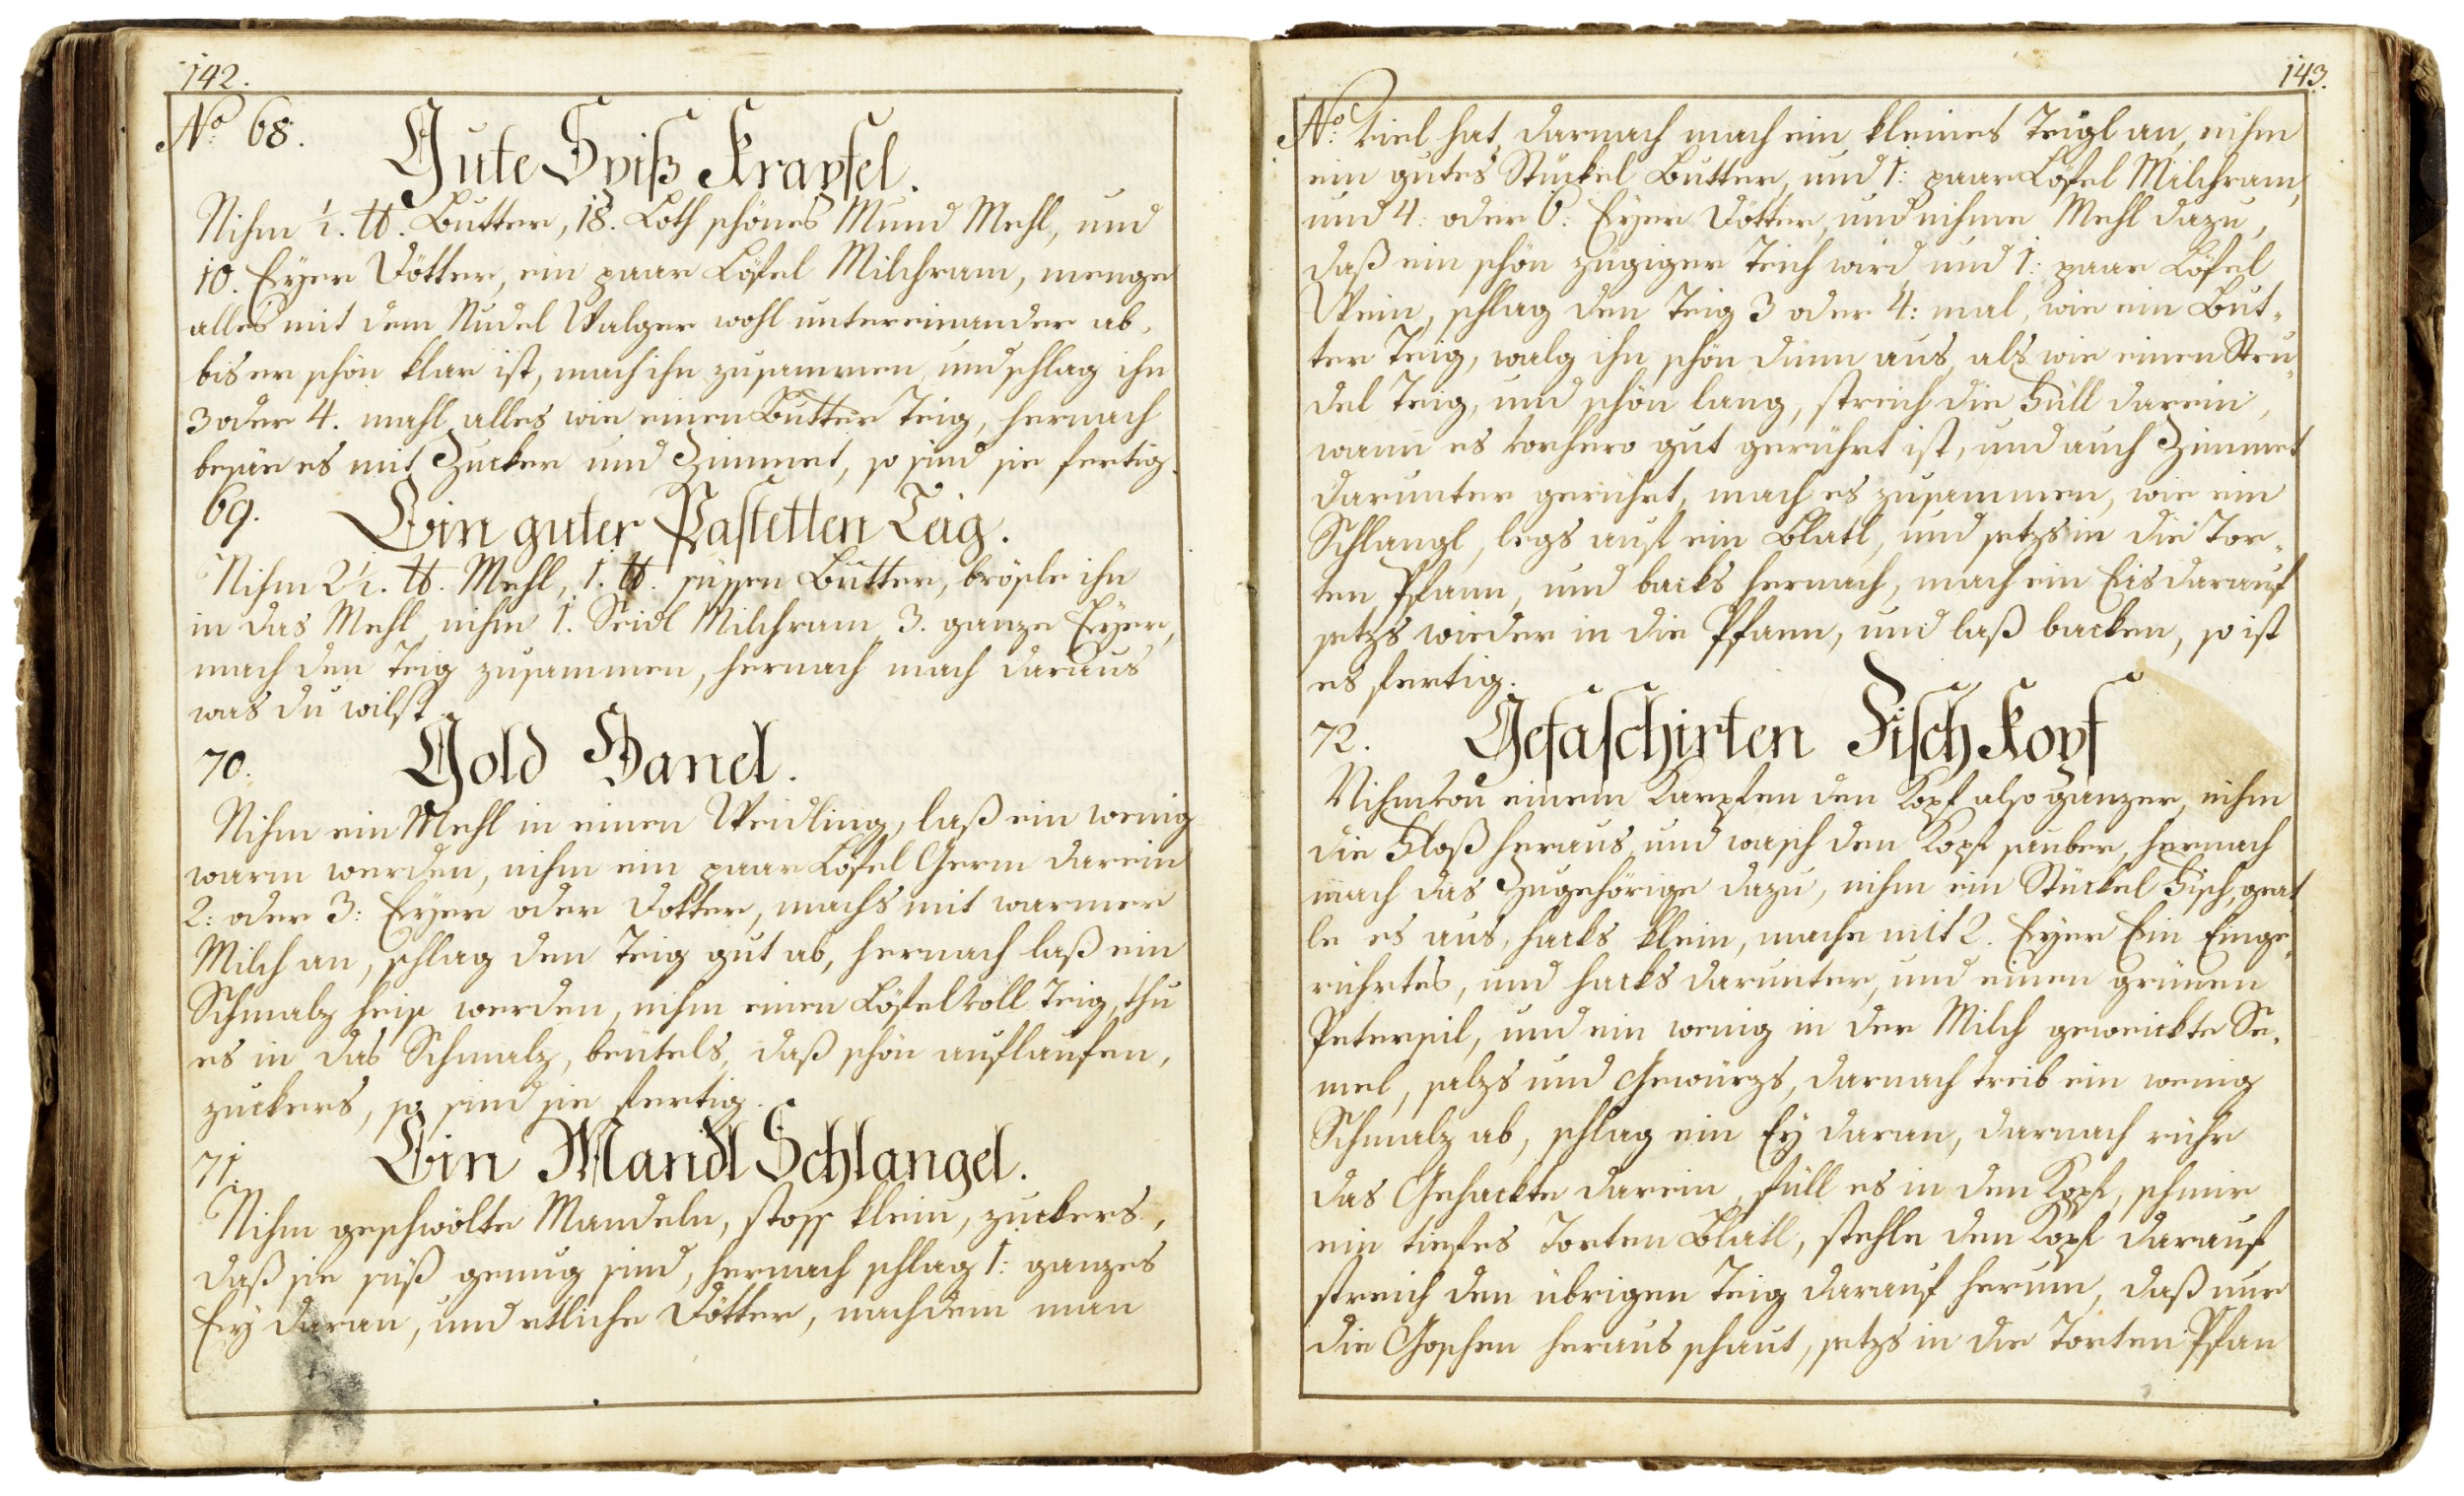 142.
No 68.
Gute Spiß Krapfel.
Nihm ½. ℔. Butter, 18. Loth schönes Mund Mehl, und
10. Eyer Dötter, ein paar Löfel Milchram, menge
alles mit dem Nudel Walger wohl untereinander ab,
bis er schön klar ist, mach ihn zusammen, und schlag ihn
3 oder 4. mahl alles wie einen Butter Teig, hernach
besäe es mit Zucker und Zimmet, so sind sie fertig.
69.
Ein guter Pastetten Teig.
Nihm 2½. ℔. Mehl, 1. ℔. süssen Butter, brösle ihn
in das Mehl, nihm 1. Seidl Milchram, 3. ganze Eyer,
mach den Teig zusammen, hernach mach daraus
was du wilst.
70.
Gold Hanel.
Nihm ein Mehl in einen Weidling, laß ein wenig
warm werden, nihm ein paar Löfel Germ darein
2: oder 3: Eyer oder Dotter, machs mit warmer
Milch an, schlag den Teig gut ab, hernach laß ein
Schmalz heiß werden, nihm einen Löfel voll Teig, thu
es in das Schmalz, beutels, daß schön auflaufen,
zuckers, so sind sie fertig.
71.
Ein Mandl Schlangel.
Nihm geschwölte Mandeln, stoss klein, zuckers,
daß sie süß genug sind, hernach schlag 1: ganzes
Ey daran, und etliche Dötter, nachdem man
143.
No: viel hat, darnach mach ein kleines Teigl an, nihm
ein gutes Stückel Butter, und 1: paar Löfel Milchram,
und 4: oder 6: Eyer Dötter, und nihme Mehl dazu,
daß ein schön zügiger Teich wird und 1: paar Löfel
Wein, schlag den Teig 3 oder 4: mal, wie ein But„
ter Teig, walg ihn schön dünn aus, als wie einen Stru„
del Teig, und schön lang, streich die Füll darein,
wann es vorhero gut gerührt ist, und auch Zimmet
darunter gerührt, mach es zusammen, wie ein
Schlangl, legs auf ein Blatl, und setzs in die Tor„
ten Pfann, und backs hernach, mach ein Eis darauf
setzs wieder in die Pfann, und laß backen, so ist
es fertig.
72.
Gefaschirten Fisch Kopf
Nihm von einem Karpfen den Kopf also ganzer, nihm
die Floß heraus, und wasch den Kopf sauber, hernach
mach das Zugehörige dazu, nihm ein Stückel Fisch, grat
le es aus, hacks klein, mache mit 2. Eyer Ein Einge„
rührtes, und hacks darunter, und einen grünen
Petersil, und ein wenig in der Milch geweickte Se„
mel, salzs und Gewürzs, darnach treib ein wenig
Schmalz ab, schlag ein Ey daran, darnach rühr
das Gehackte darein, füll es in den Kopf, schmir
ein tiefes Torten Blatl, stehle den Kopf darauf
streich den übrigen Teig darauf herum, daß nur
die Goschen heraus schaut, setzs in die Torten Pfan